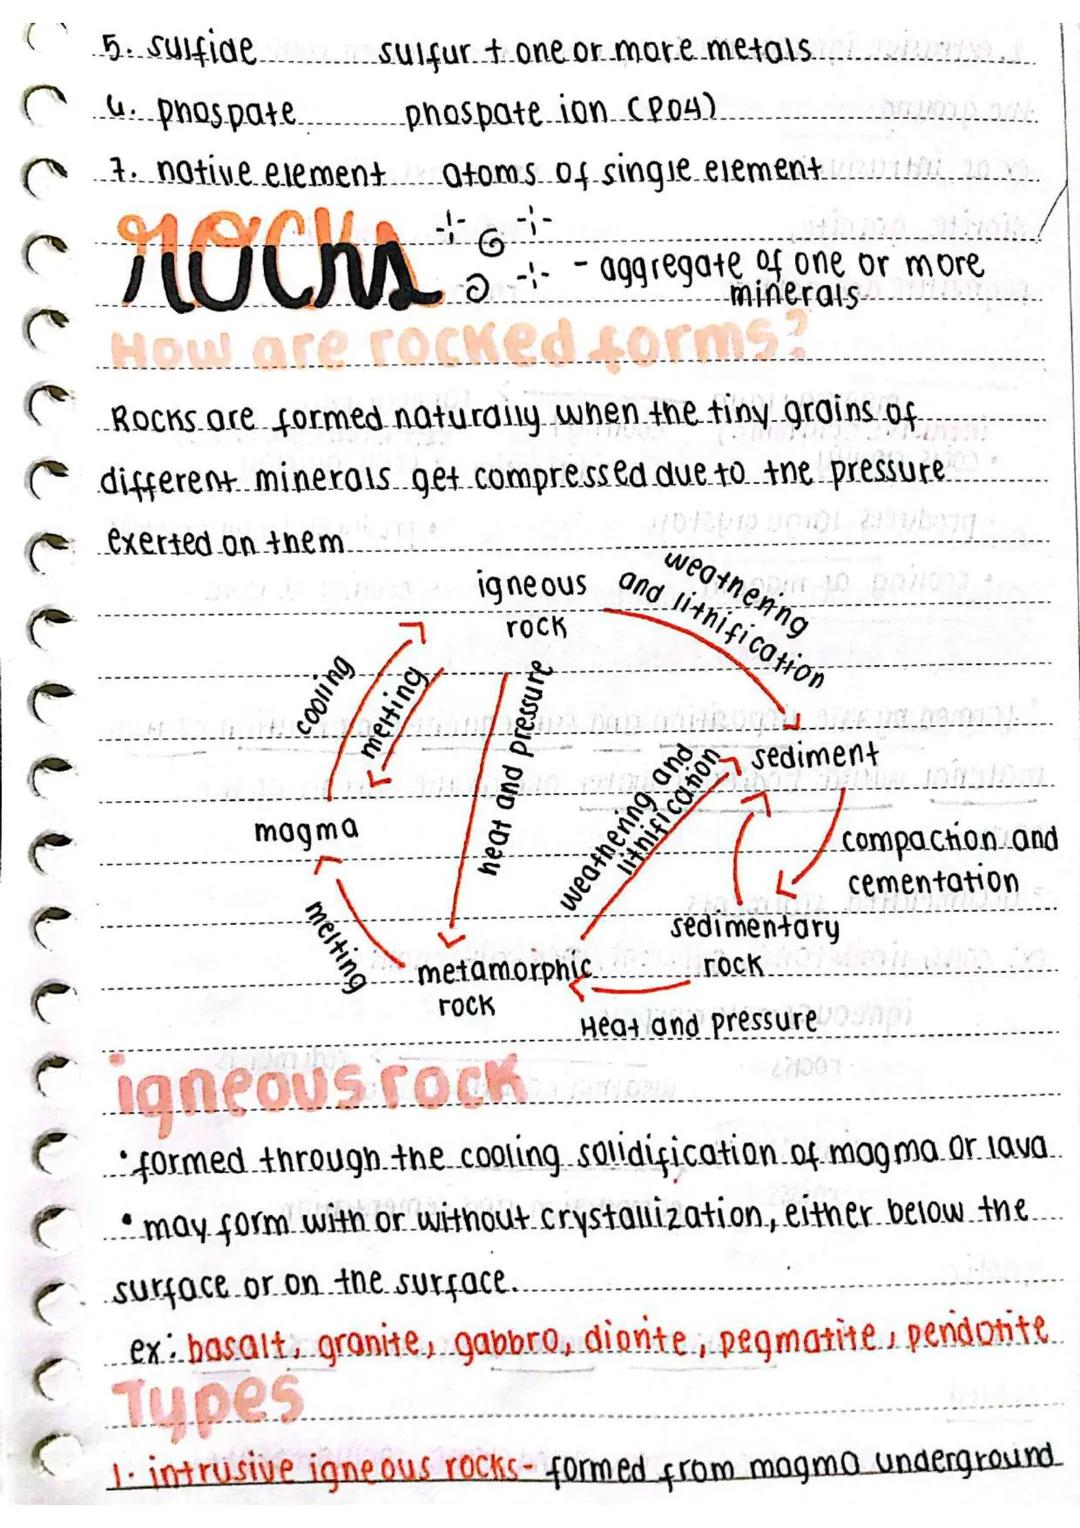 5. sulfide sulfur + one or more metals
6. phospate phospate ion (PO4)
7. native element atoms of single element
rocks
- aggregate of one or more
minerals
How are rocked forms?
Rocks are formed naturally when the tiny grains of
different minerals get compressed due to the pressure
exerted on them
igneous
rock
weathering
and lithification
cooling
melting
heat and pressure
weathering and
lithification
sediment
magma
compaction and
cementation
melting
sedimentary
rock
metamorphic
rock
Heat and pressure
igneous rock
• formed through the cooling solidification of magma or lava
• may form with or without crystallization, either below the
surface or on the surface.
ex: basalt, granite, gabbro, diorite, pegmatite, peridotite
Types
1. intrusive igneous rocks- formed from magma underground